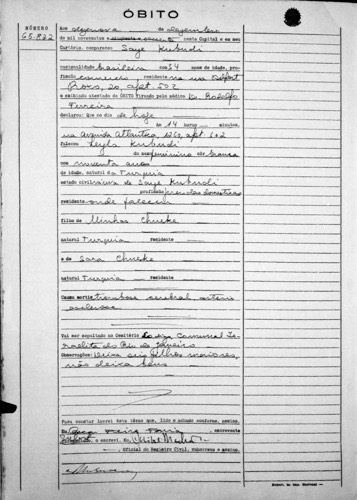 ÓBITO
NÚMERO
65.822
Aos dezenove de dezembro
de mil novecentos e sessenta e nesta Capital e em meu
Cartório, compareceu Saye Kubudi
nacionalidade brasileira com 54 anos de idade, pro-
fissão comercio residente na rua Belfort
Roxo, 20, apt. 502
e exibindo atestado de ÓBITO firmado pelo médico Dr. Rodolfo
Ferreira
declarou: Que no dia de hoje
às 14 horas minutos,
na avenida Atlantica, 1260, apt 602
faleceu Leyla Kubudi
do sexo feminino côr branca
com noventa anos
de idade, natural da Turquia
estado civil viuva de Saye Kubudi
profissão prendas domesticas
residente onde faleceu
filho de Minhas Chueke
natural Turquia residente
e de Sara Chueke
natural Turquia residente
Causa mortis trombose cerebral, arterio
esclerose
Vai ser sepultado no Cemitério Comunal Is-
raelita do Rio de Janeiro
Observações: Deixa seis filhos maiores,
não deixa bens
Para constar lavrei êste têrmo que, lido e achado conforme, assino.
Eu, escrevente
o escrevi. Eu,
, Oficial do Registro Civil, subscrevo e assino.